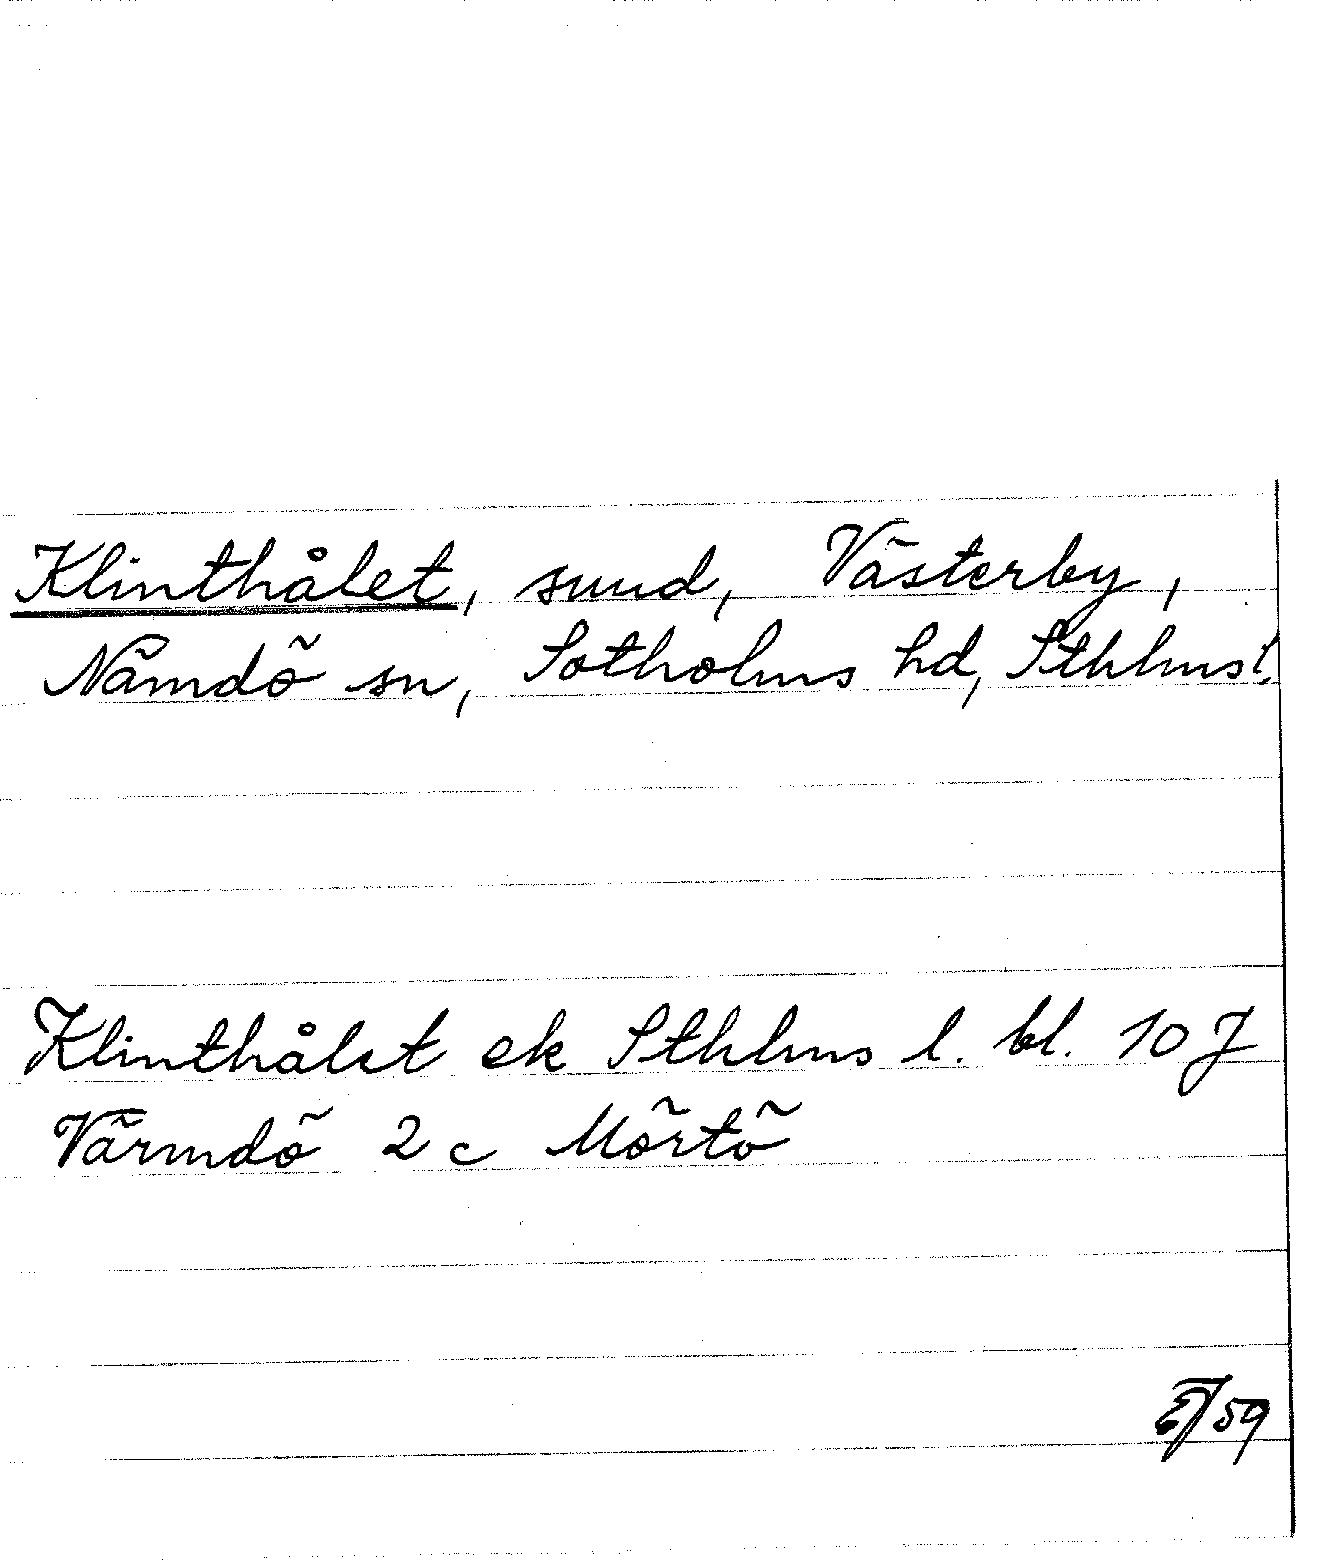 Klinthålet, sund, Västerby,
Nämdö sn, Sotholms hd, Sthlms l.
Klinthålet ek Sthlms l. bl. 10 J
Värmdö 2 c Mörtö
EJ/59